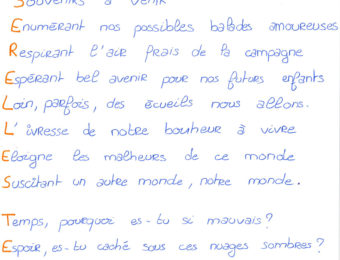 Souvenirs à venir
Enumérant nos possibles balades amoureuses
Respirant l'air frais de la campagne
Espérant bel avenir pour nos futurs enfants
Loin, parfois, des écueils nous allons.
L'ivresse de notre bonheur à vivre
Eloigne les malheurs de ce monde
Suscitant un autre monde, notre monde.
Temps, pourquoi es-tu si mauvais?
Espoir, es-tu caché sous ces nuages sombres?